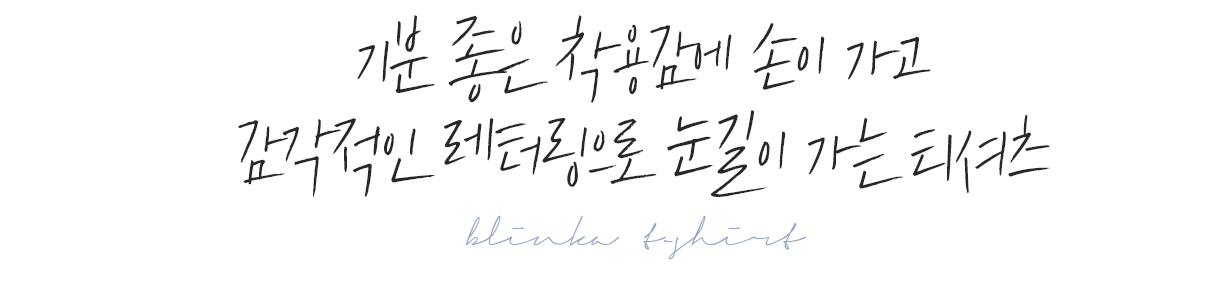 기분 좋은 착용감에 손이 가고
감각적인 레터링으로 눈길이 가는 티셔츠
blinka tyhirt